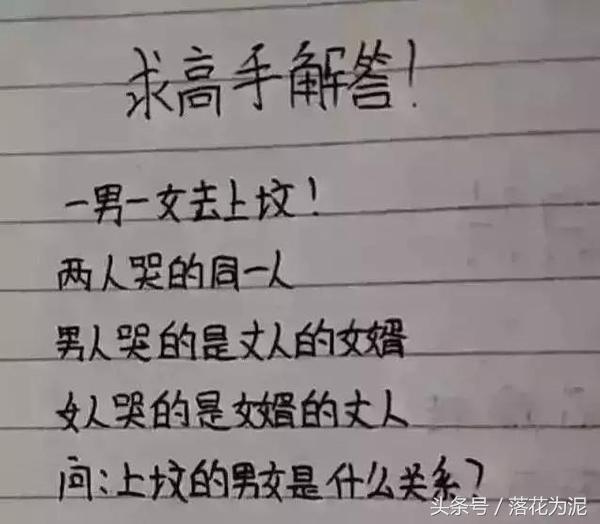 求高手解答!
一男一女去上坟!
两人哭的同一人
男人哭的是丈人的女婿
女人哭的是女婿的丈人
问:上坟的男女是什么关系?
头条号 / 落花为泥